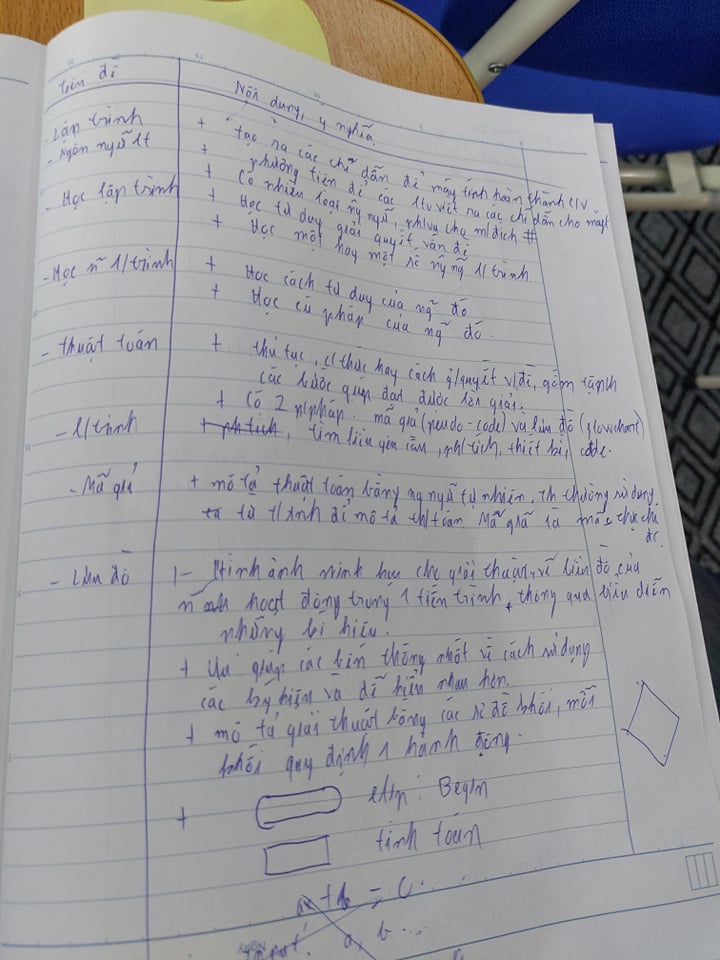 tiêu đề
Nội dung, ý nghĩa
- Lập trình
+ tạo ra các chỉ dẫn để máy tính hoàn thành c/v
- Ngôn ngữ lt
+ phương tiện để các ltv viết ra các chỉ dẫn cho máy
+ Có nhiều loại ng ngữ, ph/vụ cho m/đích #
- Học lập trình
+ Học tư duy giải quyết vấn đề
+ Học một hay một số ng ngữ l/trình
- Học n~ l/trình
+ Học cách tư duy của ngữ đó
+ Học cú pháp của ngữ đó.
- thuật toán
+ thủ tục, c/thức hay cách g/quyết v/đề, gồm
các bước giúp đạt được lời giải.
+ Có 2 p/pháp: mã giả (pseudo-code) và lưu đồ (flowchart)
- l/trình
+ ph tích, tìm hiểu yêu cầu, ph/tích, thiết kế, code.
- Mã giả
+ mô tả thuật toán bằng ng ngữ tự nhiên, th thường sử dụng
từ t/anh để mô tả th/toán Mã giả là
- Lưu đồ
- Hình ảnh minh họa cho giải thuật, vẽ biểu đồ của
hoạt động trong 1 tiến trình, thông qua biểu diễn
những kí hiệu.
+ giúp các bên thống nhất về cách sử dụng
các ký hiệu và dễ hiểu nhau hơn.
+ mô tả giải thuật bằng các sơ đồ khối, mỗi
khối quy định 1 hành động.
+ elip: Begin
tính toán
a + b = c ...
Input: a, b ...